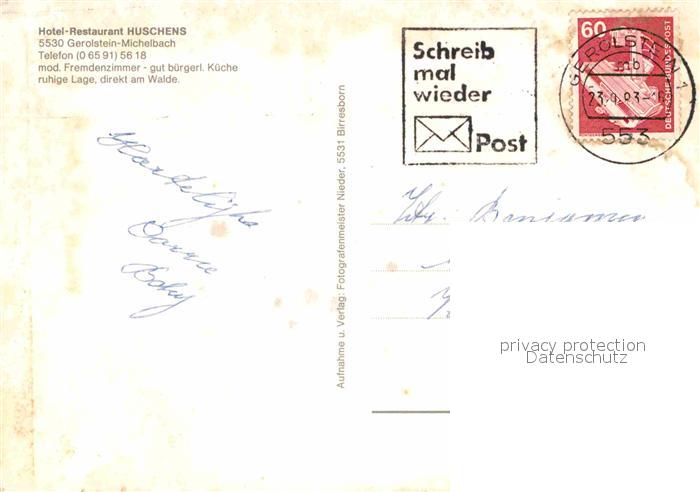 Hotel-Restaurant HUSCHENS
5530 Gerolstein-Michelbach
Telefon (0 65 91) 56 18
mod. Fremdenzimmer - gut bürgerl. Küche
ruhige Lage, direkt am Walde.
Schreib
mal
wieder
Post
60
DEUTSCHE BUNDESPOST
GEROLSTEIN 1
mb
553
Aufnahme u. Verlag: Fotografenmeister Nieder, 5531 Birresborn
privacy protection
Datenschutz